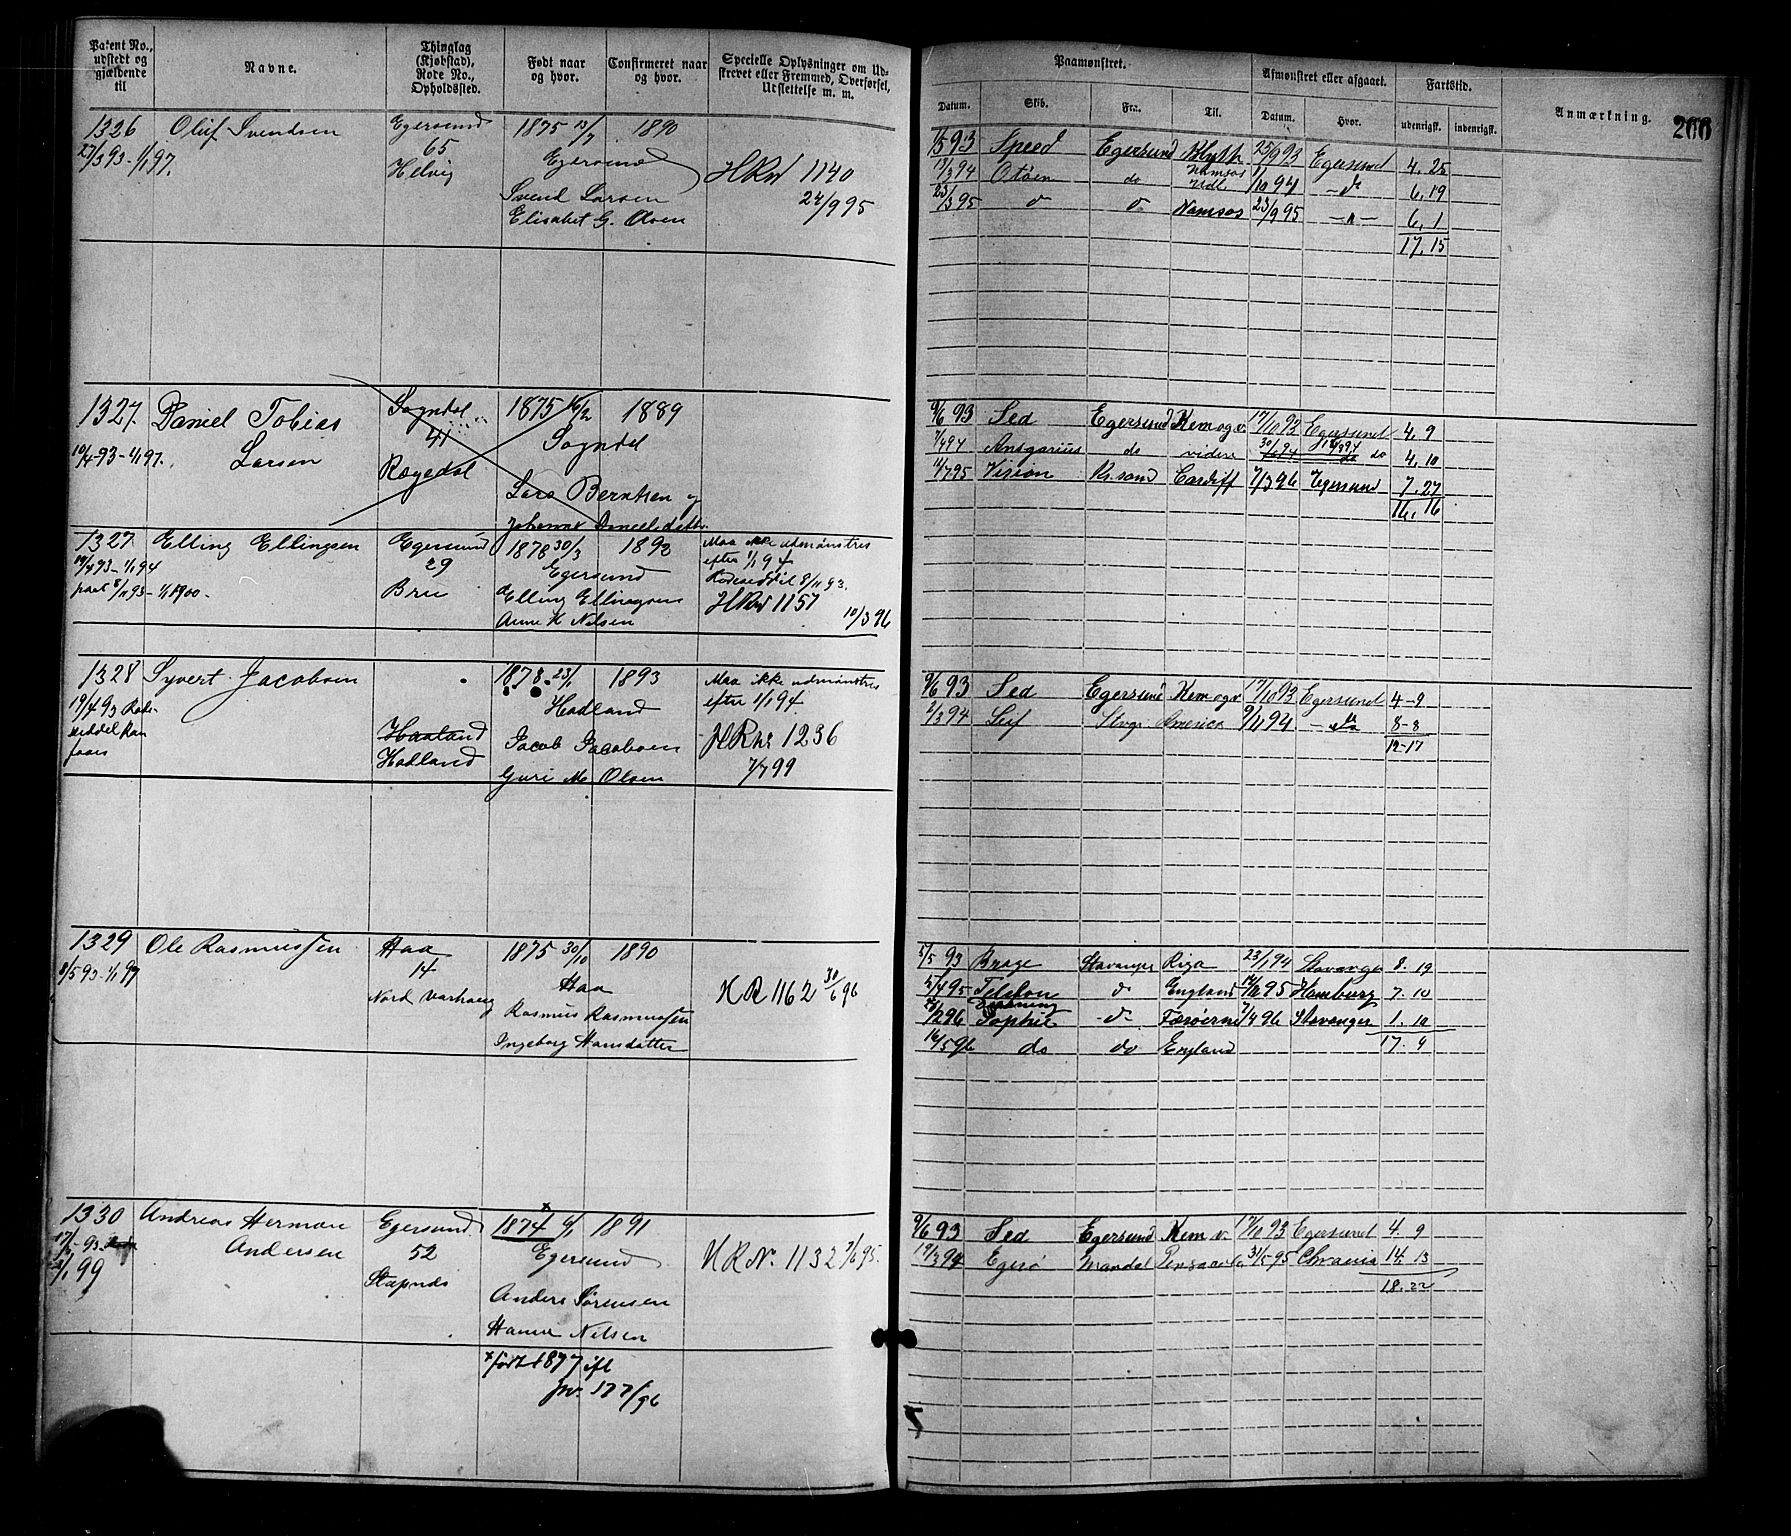 Patent No., udstedt og gjældende til
Navne.
Thinglag (Kjøbstad), Rode No., Opholdssted.
Født naar og hvor.
Confirmeret naar og hvor.
Specielle Oplysninger om Udskrevet eller Fremmed, Overførsel, Udslettelse m. m.
Paamønstret.
Datum.
Skib.
Fra.
Til.
Afmønstret eller afgaaet.
Datum.
Hvor.
Fartstid.
udenrigsk.
indenrigsk.
Anmærkning.
266
1326 Oluf Svendsen Egersund 1875 13/7 1890
27/3 93-1/1 97. 65 Egersund HRN 1140
Helvig Svend Larsen 24/9 95
Elisabet G. Olsen
1/5 93 Speed Egersund Blyth 25/9 93 Egersund 4. 25
13/3 94 Otøen do Namsos Udl. 1/10 94 - do 6. 19
23/3 95 do do Namsos 23/9 95 - " - 6. 1
17. 15
1327. Daniel Tobias Sogndal 1875 16/2 1889
10/4 93-1/1 97. Larsen 41 Sogndal
Røgedal Lars Berntsen og
Johanne Danielsdatter
9/6 93 Sed Egersund Kem og v. 17/10 93 Egersund 4. 9
7/4 94 Ansgarius do videre do 4. 10
4/7 95 Vision Kr.sand Cardiff 7/3 96 Egersund 7. 27
16. 16
1327 Elling Ellingsen Egersund 1878 30/3 1892 Maa ikke udmønstres
19/4 93-1/1 94 29 Egersund efter 1/1 94
paat 8/11 93-1/1 1900. Bru Elling Ellingsen Rodeseddel 8/11 93.
Anne K Nilsen HRN 1157 10/3 96
1328 Syvert Jacobsen 1878 23/1 1893 Maa ikke udmønstres
19/4 93 Rode- Hadland efter 1/1 94.
seddel kan Haaland Jacob Jacobsen HRN 1236
faaes Hadland Guri M. Olsen 7/7 99
9/6 93 Sed Egersund Kem og v 17/10 93 Egersund 4-9
2/3 94 Leif Stvgr America 9/11 94 - do 8-8
12-17
1329 Ole Rasmussen Haa 1875 30/10 1890
8/5 93-1/1 97 14 Haa HR 1162 30/6 96
Nord Varhaug Rasmus Rasmussen
Ingeborg Hansdatter
5/5 93 Brage Stavanger Riga 23/1 94 Stavanger 8. 19
5/4 95 do England 95 Hamburg 7. 10
2 96 Sophie - do - Færøerne 7/4 96 Stavanger 1. 10
16/5 96 do do England 17. 9
1330 Andreas Herman Egersund 1874 6/1 1891
Andersen 52 Egersund HRN. 1132 7/6 95.
1/1 99 Stapnes Anders Sørensen
Hanne Nilsen
x født 1877 ifl
jnr. 177/96
9/6 93 Sed Egersund Kem v. 17/10 93 Egersund 4. 9
19/3 94 Egerø Mandal Pensacola 31/5 95 Chrania 14. 13
18. 22